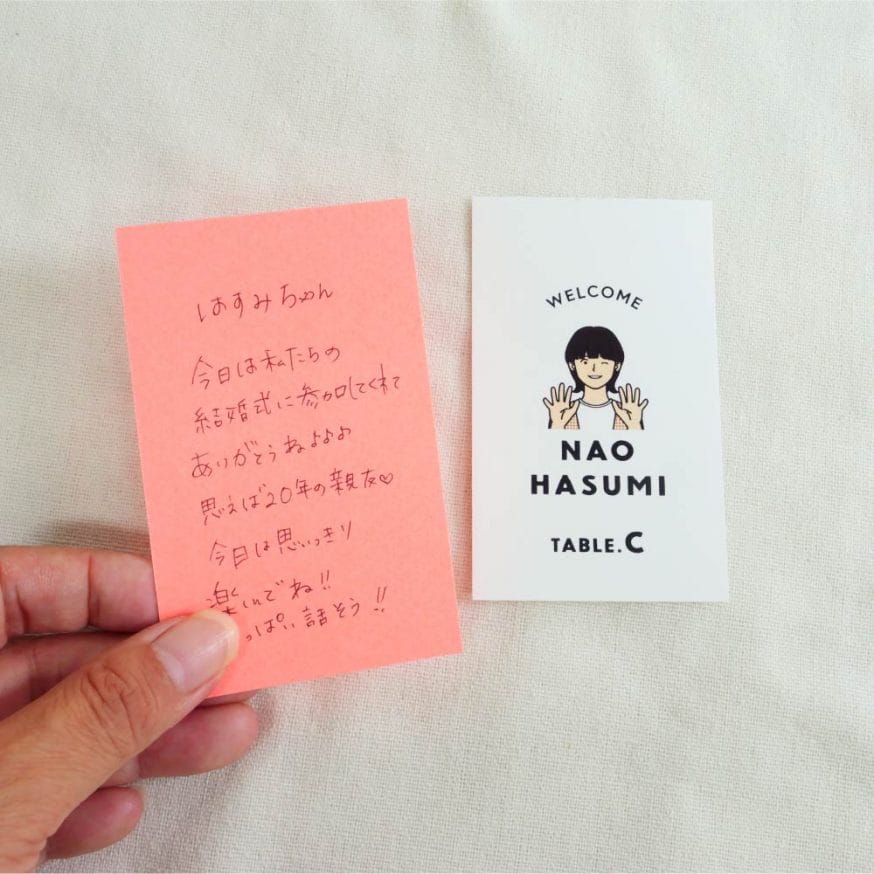 はすみちゃん
今日は私たちの
結婚式に参加してくれて
ありがとうねよよよ
思えば20年の親友♡
今日は思いっきり
楽しんでね!!
っぱい話そう!!
WELCOME
NAO
HASUMI
TABLE.C